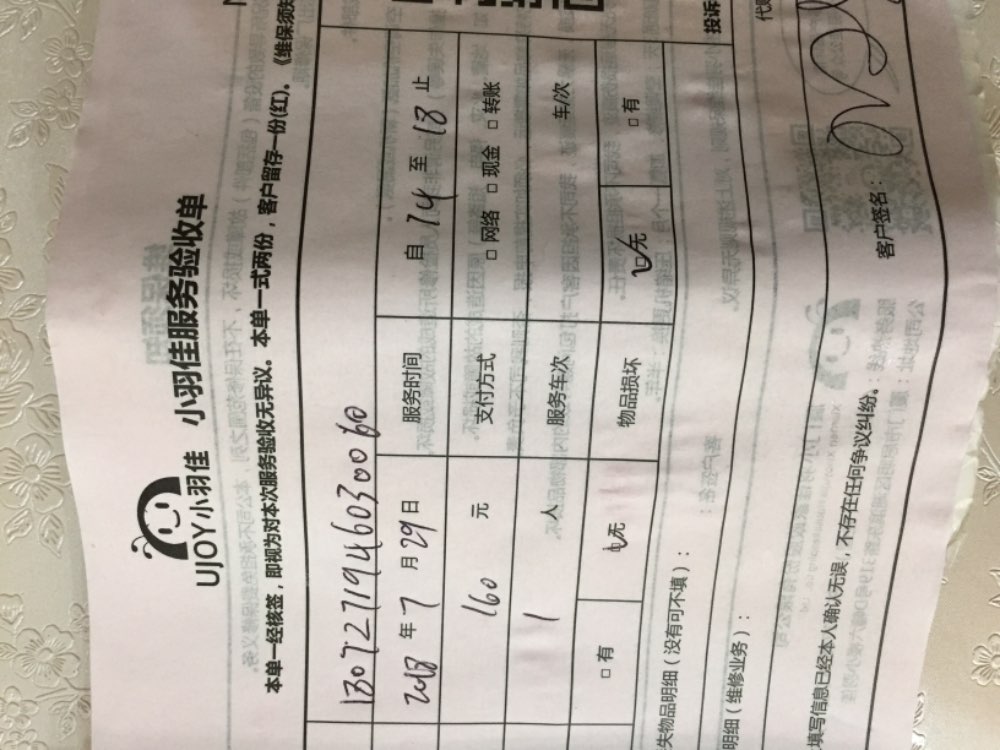 UJOY小羽佳 小羽佳服务验收单
本单一经核签，即视为对本次服务验收无异议。本单一式两份，客户留存一份(红)。《维保须知
投诉
代
1307271946030060
2018 年 7 月 29 日 服务时间 自 14 至 18 止
160 元 支付方式 □ 网络 □ 现金 □ 转账
1 人 服务车次 车/次
□ 有 ☑无 物品损坏 ☑无 □ 有
失物品明细（没有可不填）：
明细（维修业务）：
填写信息已经本人确认无误，不存在任何争议纠纷。 客户签名：